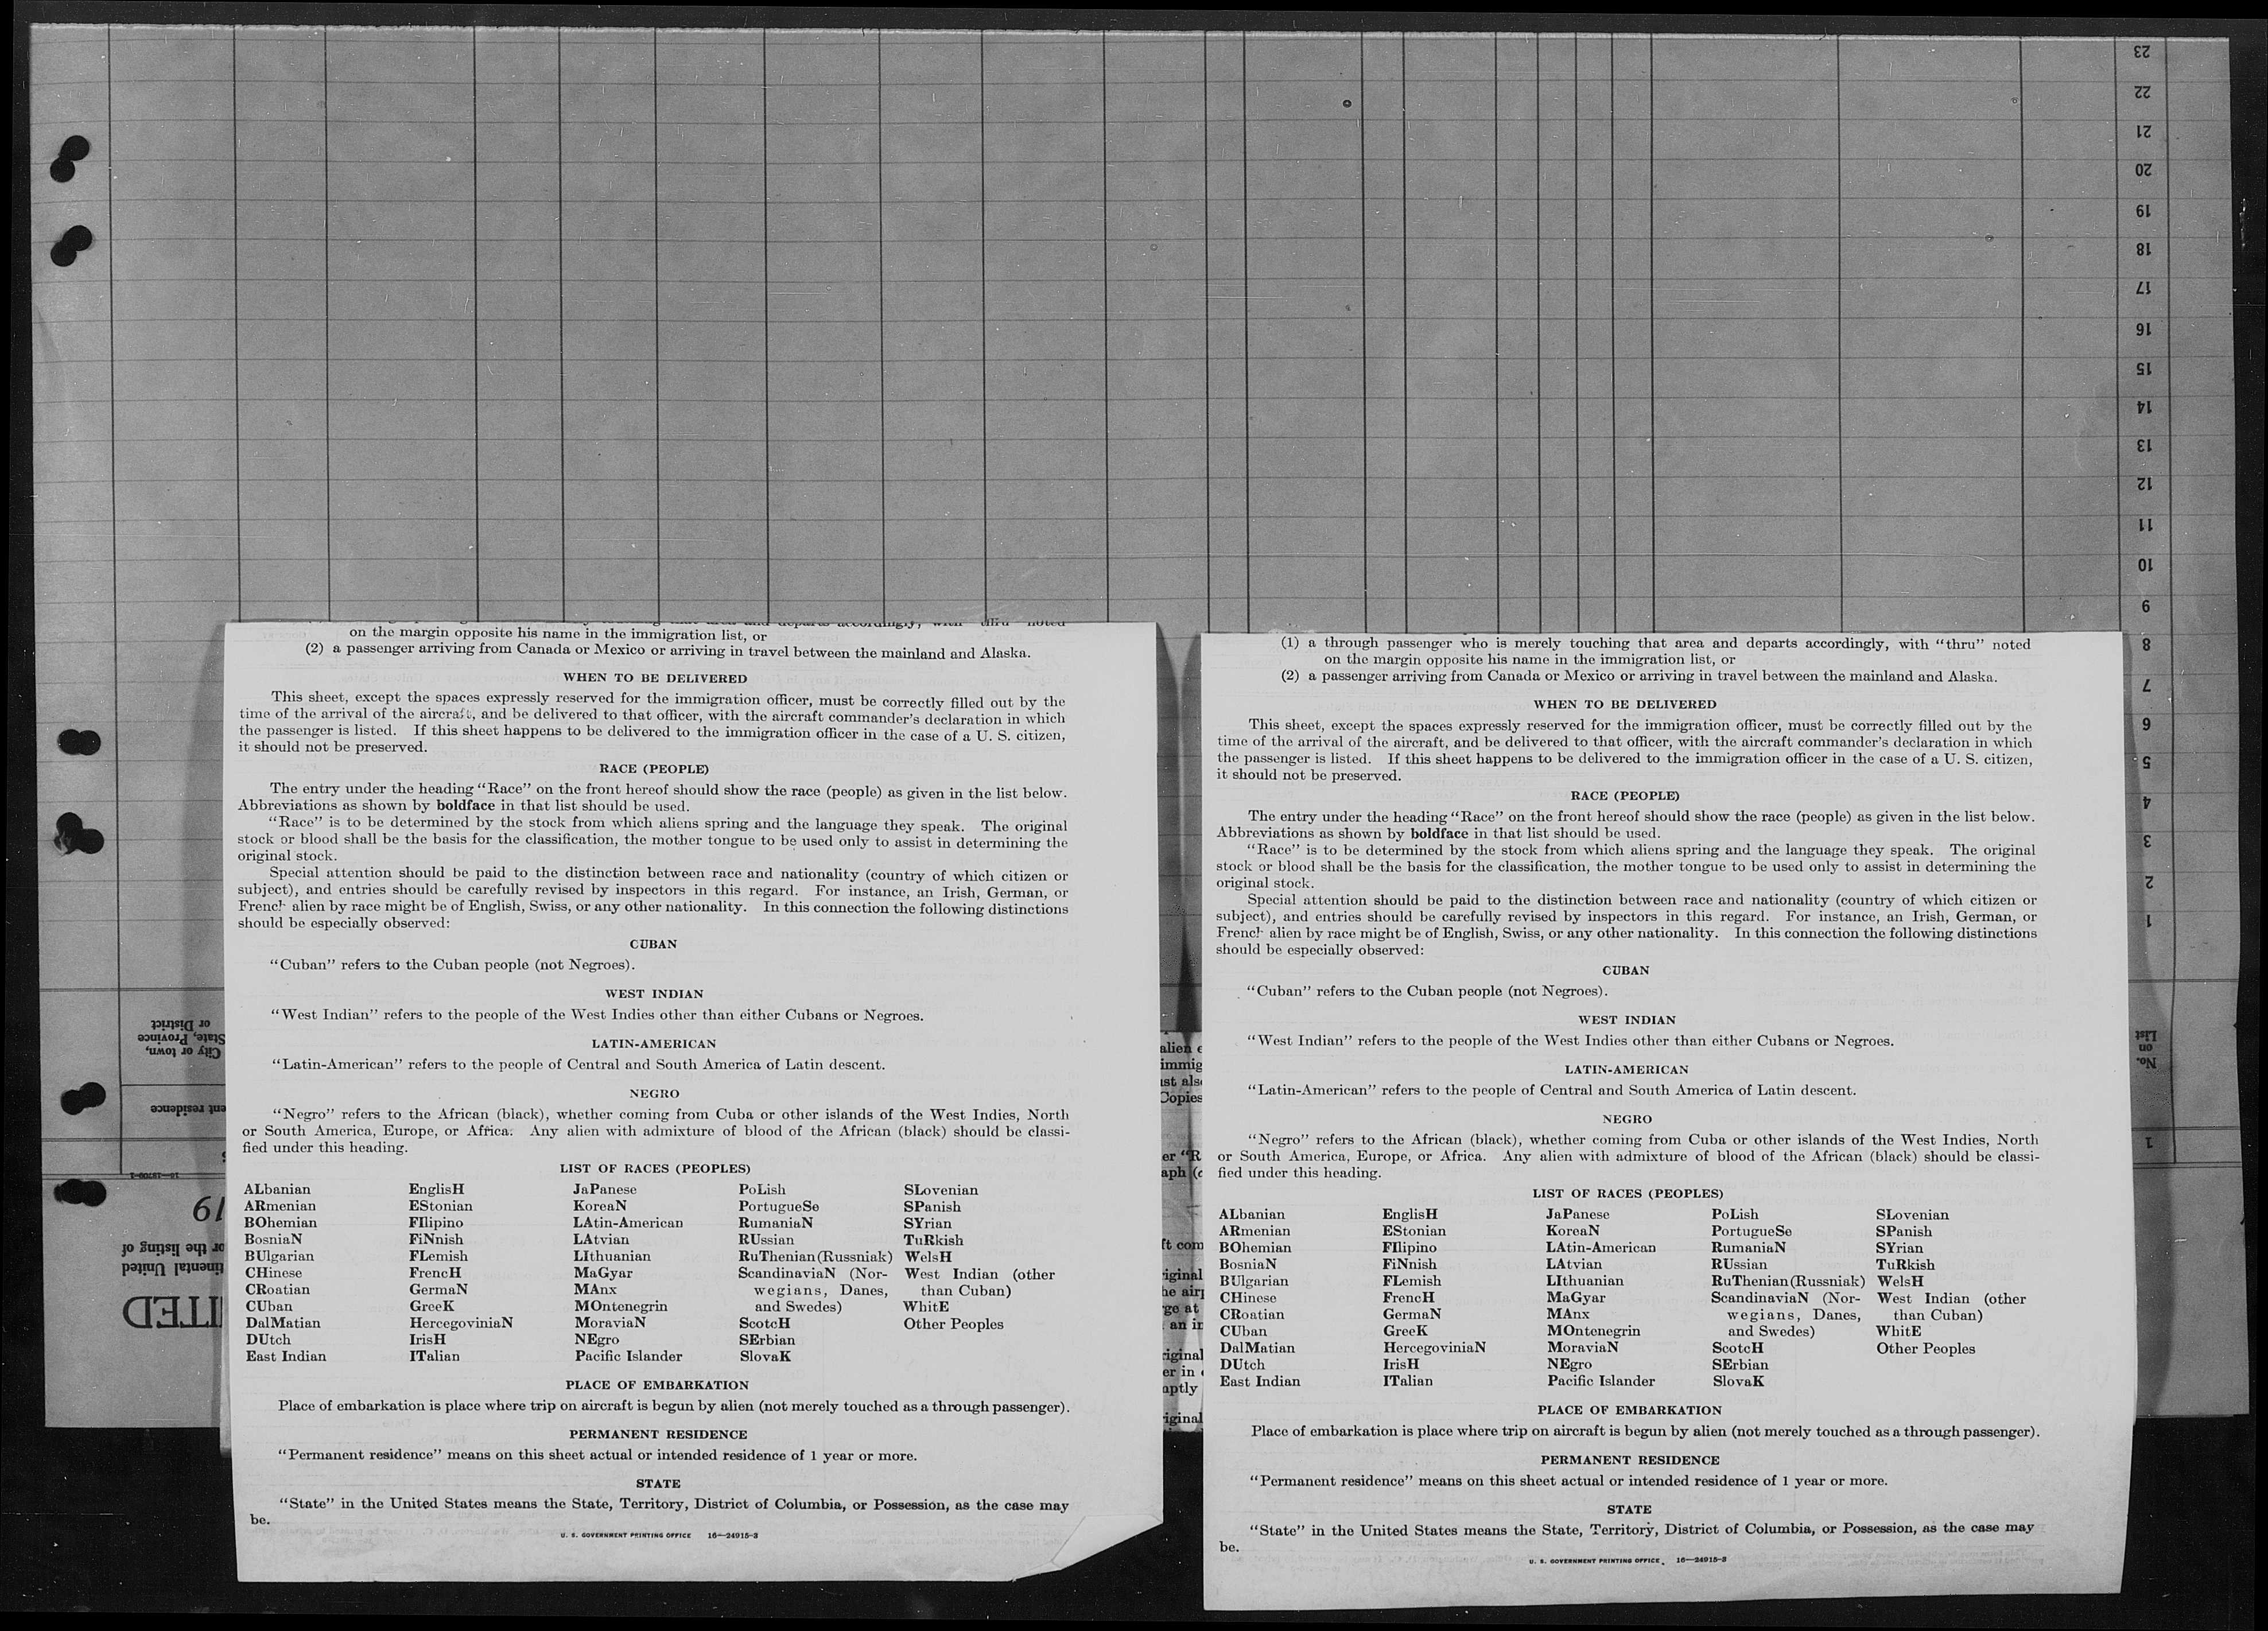 23
22
21
20
19
18
17
16
15
14
13
12
11
10
9
8
7
6
5
4
3
2
1
No.
on
List
1
City or town,
State, Province
or District
ent residence
16—19709-1
19
or the listing of
tinental United
ITED
on the margin opposite his name in the immigration list, or
(2) a passenger arriving from Canada or Mexico or arriving in travel between the mainland and Alaska.
WHEN TO BE DELIVERED
This sheet, except the spaces expressly reserved for the immigration officer, must be correctly filled out by the
time of the arrival of the aircraft, and be delivered to that officer, with the aircraft commander's declaration in which
the passenger is listed. If this sheet happens to be delivered to the immigration officer in the case of a U. S. citizen,
it should not be preserved.
RACE (PEOPLE)
The entry under the heading "Race" on the front hereof should show the race (people) as given in the list below.
Abbreviations as shown by boldface in that list should be used.
"Race" is to be determined by the stock from which aliens spring and the language they speak. The original
stock or blood shall be the basis for the classification, the mother tongue to be used only to assist in determining the
original stock.
Special attention should be paid to the distinction between race and nationality (country of which citizen or
subject), and entries should be carefully revised by inspectors in this regard. For instance, an Irish, German, or
French alien by race might be of English, Swiss, or any other nationality. In this connection the following distinctions
should be especially observed:
CUBAN
"Cuban" refers to the Cuban people (not Negroes).
WEST INDIAN
"West Indian" refers to the people of the West Indies other than either Cubans or Negroes.
LATIN-AMERICAN
"Latin-American" refers to the people of Central and South America of Latin descent.
NEGRO
"Negro" refers to the African (black), whether coming from Cuba or other islands of the West Indies, North
or South America, Europe, or Africa. Any alien with admixture of blood of the African (black) should be classi-
fied under this heading.
LIST OF RACES (PEOPLES)
ALbanian EnglisH JaPanese PoLish SLovenian
ARmenian EStonian KoreaN PortugueSe SPanish
BOhemian FIlipino LAtin-American RumaniaN SYrian
BosniaN FiNnish LAtvian RUssian TuRkish
BUlgarian FLemish LIthuanian RuThenian (Russniak) WelsH
CHinese FrencH MaGyar ScandinaviaN (Nor- West Indian (other
CRoatian GermaN MAnx wegians, Danes, than Cuban)
CUban GreeK MOntenegrin and Swedes) WhitE
DalMatian HercegoviniaN MoraviaN ScotcH Other Peoples
DUtch IrisH NEgro SErbian
East Indian ITalian Pacific Islander SlovaK
PLACE OF EMBARKATION
Place of embarkation is place where trip on aircraft is begun by alien (not merely touched as a through passenger).
PERMANENT RESIDENCE
"Permanent residence" means on this sheet actual or intended residence of 1 year or more.
STATE
"State" in the United States means the State, Territory, District of Columbia, or Possession, as the case may
be.
U. S. GOVERNMENT PRINTING OFFICE 16—24915-3
alien
immig
st als
Copies
er "R
aph (
ft com
iginal
he air
ge at
an in
iginal
er in
aptly
iginal
(1) a through passenger who is merely touching that area and departs accordingly, with "thru" noted
on the margin opposite his name in the immigration list, or
(2) a passenger arriving from Canada or Mexico or arriving in travel between the mainland and Alaska.
WHEN TO BE DELIVERED
This sheet, except the spaces expressly reserved for the immigration officer, must be correctly filled out by the
time of the arrival of the aircraft, and be delivered to that officer, with the aircraft commander's declaration in which
the passenger is listed. If this sheet happens to be delivered to the immigration officer in the case of a U. S. citizen,
it should not be preserved.
RACE (PEOPLE)
The entry under the heading "Race" on the front hereof should show the race (people) as given in the list below.
Abbreviations as shown by boldface in that list should be used.
"Race" is to be determined by the stock from which aliens spring and the language they speak. The original
stock or blood shall be the basis for the classification, the mother tongue to be used only to assist in determining the
original stock.
Special attention should be paid to the distinction between race and nationality (country of which citizen or
subject), and entries should be carefully revised by inspectors in this regard. For instance, an Irish, German, or
French alien by race might be of English, Swiss, or any other nationality. In this connection the following distinctions
should be especially observed:
CUBAN
"Cuban" refers to the Cuban people (not Negroes).
WEST INDIAN
"West Indian" refers to the people of the West Indies other than either Cubans or Negroes.
LATIN-AMERICAN
"Latin-American" refers to the people of Central and South America of Latin descent.
NEGRO
"Negro" refers to the African (black), whether coming from Cuba or other islands of the West Indies, North
or South America, Europe, or Africa. Any alien with admixture of blood of the African (black) should be classi-
fied under this heading.
LIST OF RACES (PEOPLES)
ALbanian EnglisH JaPanese PoLish SLovenian
ARmenian EStonian KoreaN PortugueSe SPanish
BOhemian FIlipino LAtin-American RumaniaN SYrian
BosniaN FiNnish LAtvian RUssian TuRkish
BUlgarian FLemish LIthuanian RuThenian (Russniak) WelsH
CHinese FrencH MaGyar ScandinaviaN (Nor- West Indian (other
CRoatian GermaN MAnx wegians, Danes, than Cuban)
CUban GreeK MOntenegrin and Swedes) WhitE
DalMatian HercegoviniaN MoraviaN ScotcH Other Peoples
DUtch IrisH NEgro SErbian
East Indian ITalian Pacific Islander SlovaK
PLACE OF EMBARKATION
Place of embarkation is place where trip on aircraft is begun by alien (not merely touched as a through passenger).
PERMANENT RESIDENCE
"Permanent residence" means on this sheet actual or intended residence of 1 year or more.
STATE
"State" in the United States means the State, Territory, District of Columbia, or Possession, as the case may
be.
U. S. GOVERNMENT PRINTING OFFICE 16—24915-3